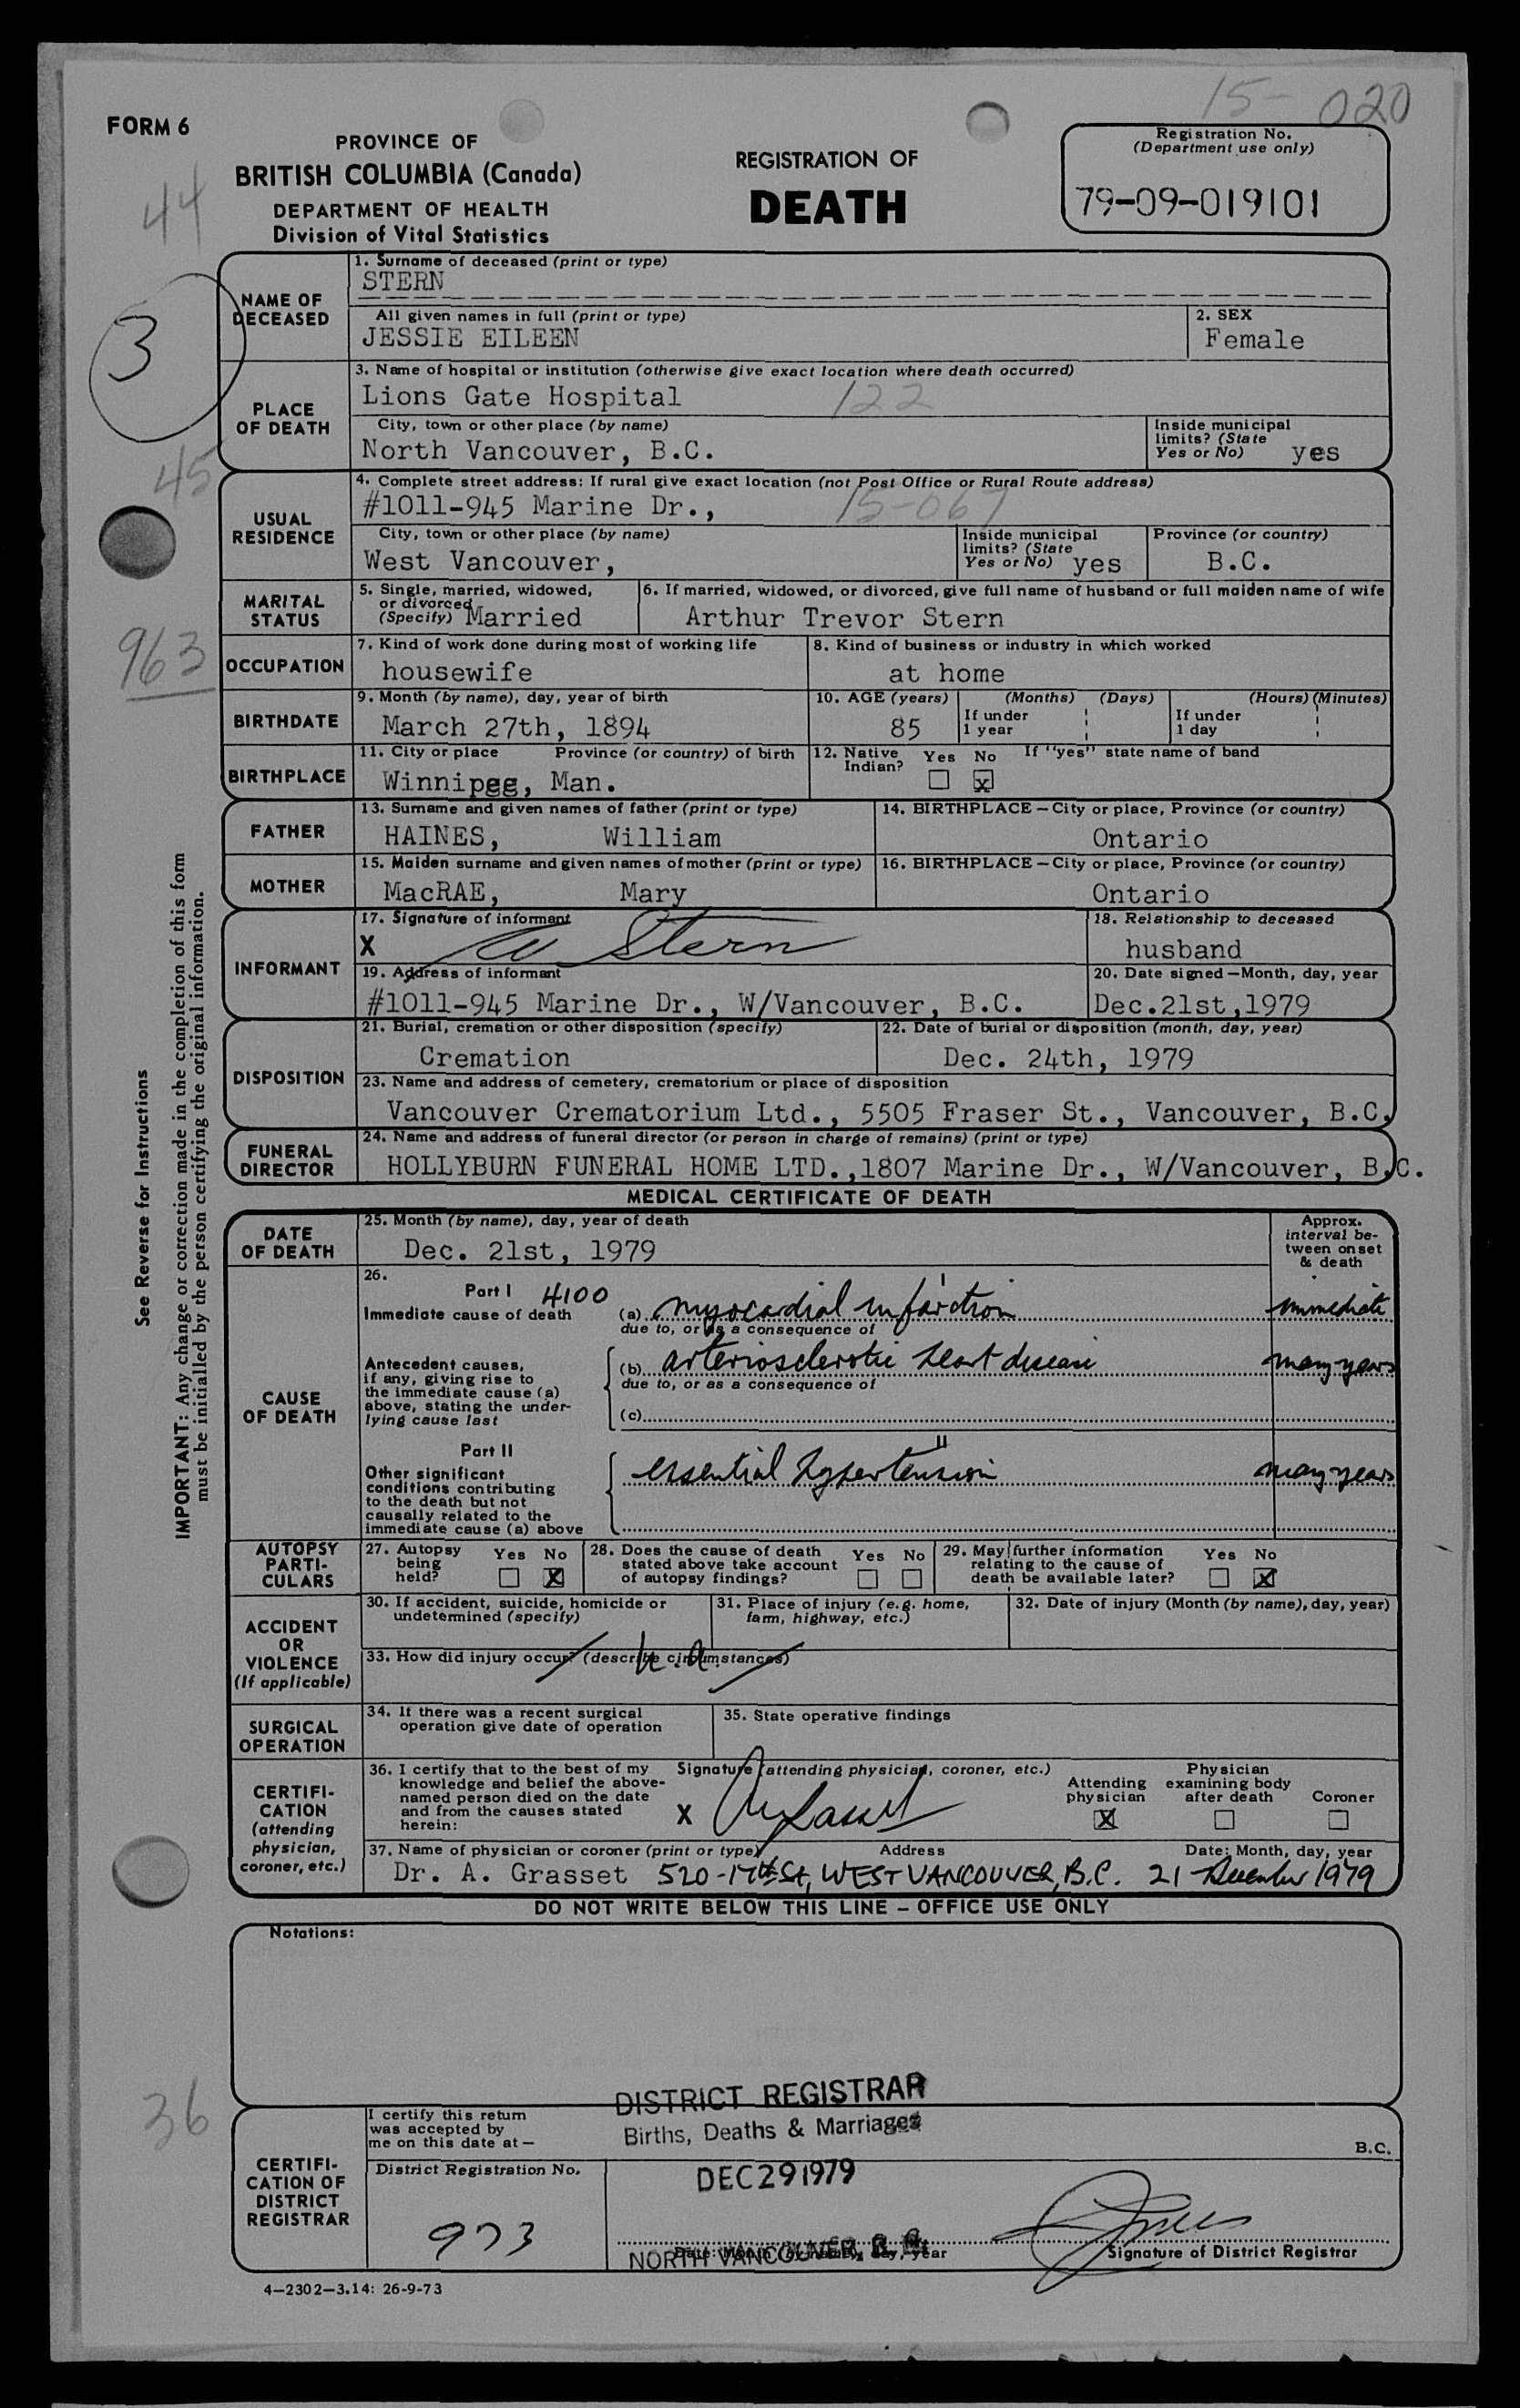 15- 020
FORM 6
PROVINCE OF
BRITISH COLUMBIA (Canada)
DEPARTMENT OF HEALTH
Division of Vital Statistics
REGISTRATION OF
DEATH
Registration No.
(Department use only)
79-09-019101
44
3
45
963
NAME OF DECEASED
1. Surname of deceased (print or type)
STERN
All given names in full (print or type)
JESSIE EILEEN
2. SEX
Female
PLACE OF DEATH
3. Name of hospital or institution (otherwise give exact location where death occurred)
Lions Gate Hospital 122
City, town or other place (by name)
North Vancouver, B.C.
Inside municipal limits? (State Yes or No) yes
USUAL RESIDENCE
4. Complete street address: If rural give exact location (not Post Office or Rural Route address)
#1011-945 Marine Dr., 15-067
City, town or other place (by name)
West Vancouver,
Inside municipal limits? (State Yes or No) yes
Province (or country)
B.C.
MARITAL STATUS
5. Single, married, widowed, or divorced (Specify) Married
6. If married, widowed, or divorced, give full name of husband or full maiden name of wife
Arthur Trevor Stern
OCCUPATION
7. Kind of work done during most of working life
housewife
8. Kind of business or industry in which worked
at home
BIRTHDATE
9. Month (by name), day, year of birth
March 27th, 1894
10. AGE (years)
85
(Months) (Days)
If under 1 year
(Hours) (Minutes)
If under 1 day
BIRTHPLACE
11. City or place Province (or country) of birth
Winnipeg, Man.
12. Native Indian? Yes No x
If "yes" state name of band
FATHER
13. Surname and given names of father (print or type)
HAINES, William
14. BIRTHPLACE — City or place, Province (or country)
Ontario
MOTHER
15. Maiden surname and given names of mother (print or type)
MacRAE, Mary
16. BIRTHPLACE — City or place, Province (or country)
Ontario
INFORMANT
17. Signature of informant
X Stern
18. Relationship to deceased
husband
19. Address of informant
#1011-945 Marine Dr., W/Vancouver, B.C.
20. Date signed — Month, day, year
Dec.21st,1979
DISPOSITION
21. Burial, cremation or other disposition (specify)
Cremation
22. Date of burial or disposition (month, day, year)
Dec. 24th, 1979
23. Name and address of cemetery, crematorium or place of disposition
Vancouver Crematorium Ltd., 5505 Fraser St., Vancouver, B.C.
FUNERAL DIRECTOR
24. Name and address of funeral director (or person in charge of remains) (print or type)
HOLLYBURN FUNERAL HOME LTD.,1807 Marine Dr., W/Vancouver, B.C.
See Reverse for Instructions
IMPORTANT: Any change or correction made in the completion of this form
must be initialled by the person certifying the original information.
MEDICAL CERTIFICATE OF DEATH
DATE OF DEATH
25. Month (by name), day, year of death
Dec. 21st, 1979
Approx. interval between onset & death
CAUSE OF DEATH
26.
Part I 4100
Immediate cause of death
(a) myocardial infarction immediate
due to, or as a consequence of
Antecedent causes, if any, giving rise to the immediate cause (a) above, stating the underlying cause last
(b) arteriosclerotic heart disease many years
due to, or as a consequence of
(c)
Part II
Other significant conditions contributing to the death but not causally related to the immediate cause (a) above
essential hypertension many years
AUTOPSY PARTICULARS
27. Autopsy being held? Yes No X
28. Does the cause of death stated above take account of autopsy findings? Yes No
29. May further information relating to the cause of death be available later? Yes No X
ACCIDENT OR VIOLENCE (If applicable)
30. If accident, suicide, homicide or undetermined (specify)
31. Place of injury (e.g. home, farm, highway, etc.)
32. Date of injury (Month (by name), day, year)
33. How did injury occur? (describe circumstances)
n.a.
SURGICAL OPERATION
34. If there was a recent surgical operation give date of operation
35. State operative findings
CERTIFICATION (attending physician, coroner, etc.)
36. I certify that to the best of my knowledge and belief the above-named person died on the date and from the causes stated herein:
Signature (attending physician, coroner, etc.)
X
Attending physician X
Physician examining body after death
Coroner
37. Name of physician or coroner (print or type) Address Date: Month, day, year
Dr. A. Grasset 520-17th St, WEST VANCOUVER, B.C. 21 December 1979
DO NOT WRITE BELOW THIS LINE – OFFICE USE ONLY
Notations:
36
CERTIFICATION OF DISTRICT REGISTRAR
I certify this return was accepted by me on this date at —
DISTRICT REGISTRAR
Births, Deaths & Marriages
B.C.
District Registration No.
973
DEC 29 1979
NORTH VANCOUVER, B.C.
Signature of District Registrar
4—2302—3.14: 26-9-73